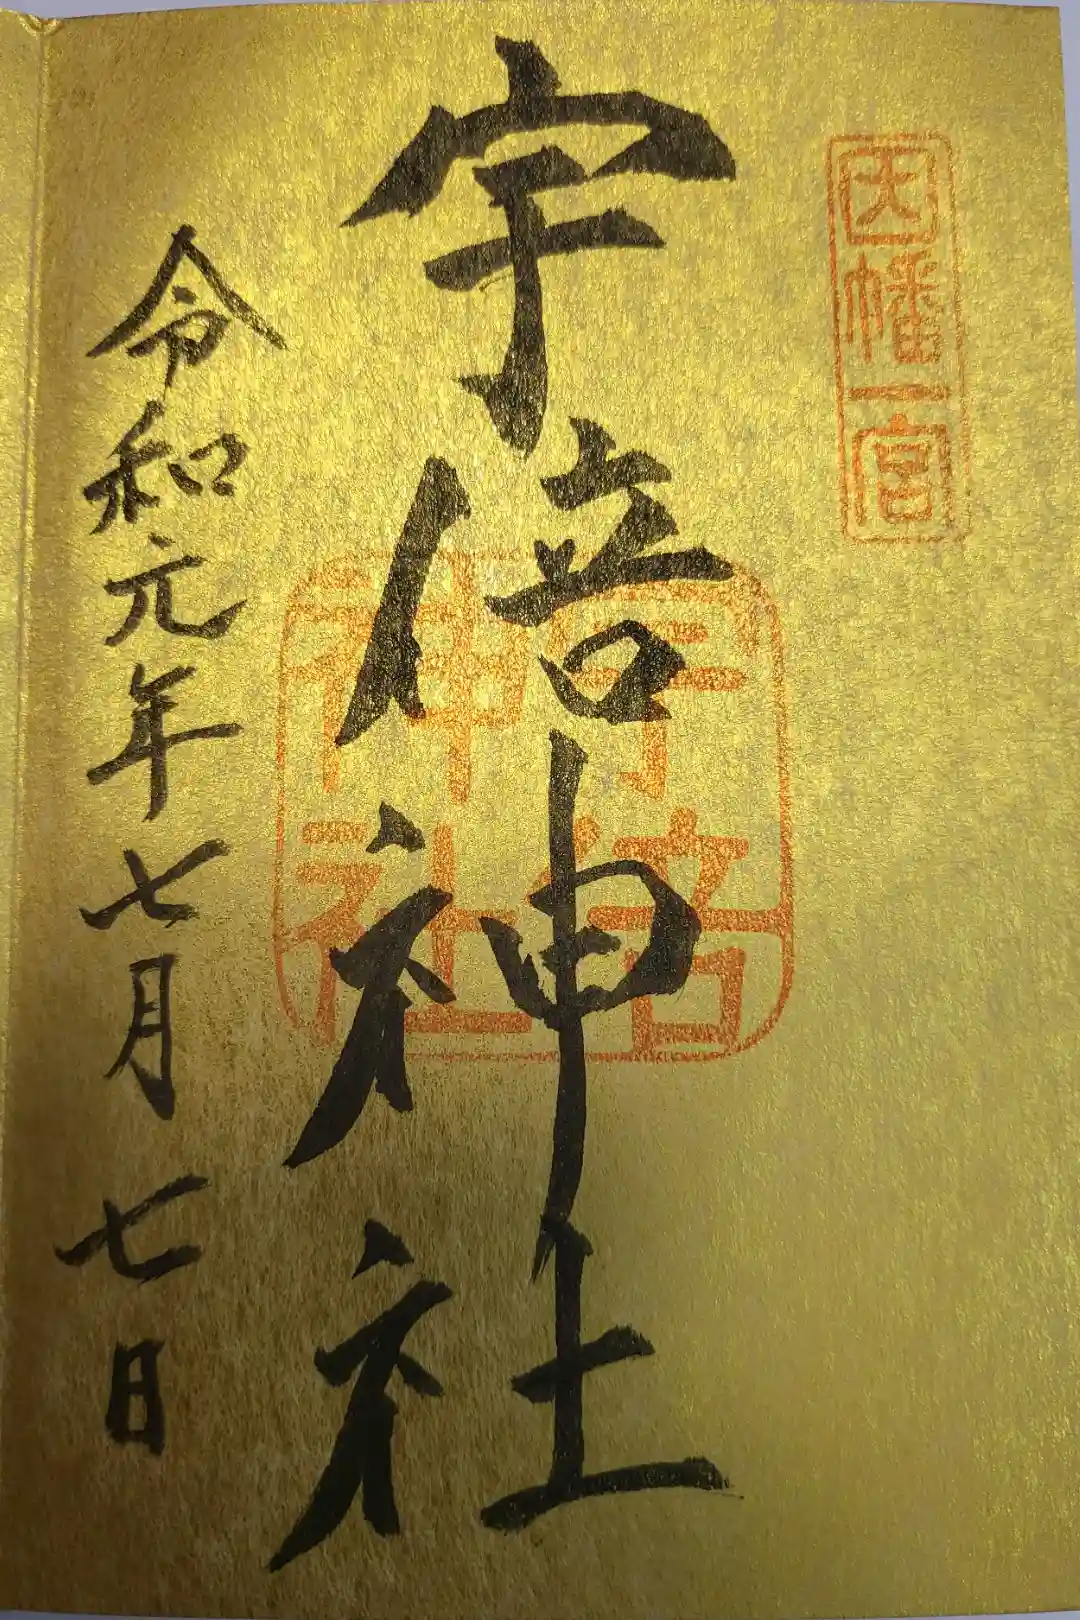 因幡一宮
宇倍神社
宇倍
神社
令和元年七月七日